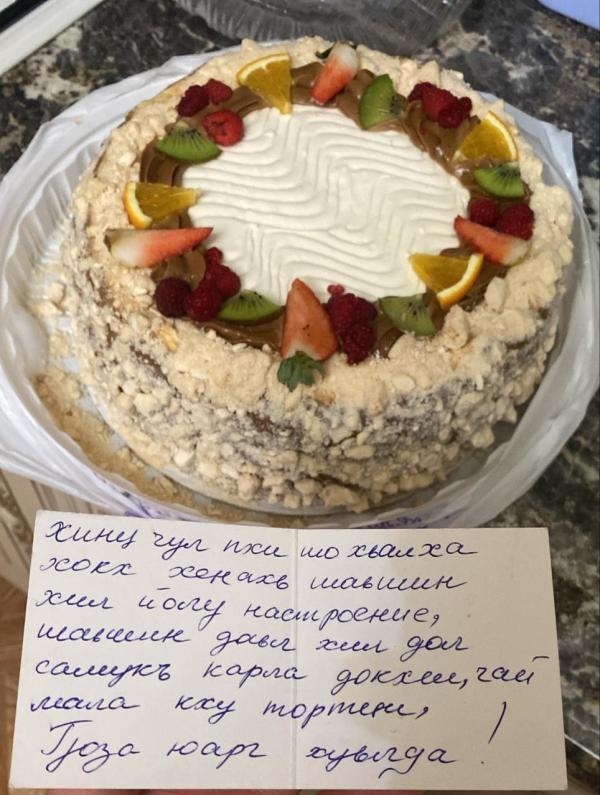 хинц чул пхи шо хьалха
хокх хенахь шавшин
хил йолу настроение,
шавшин давл хил дол
самукъ карла докхш, чай
мала кху тортци,
Гӏоза юарг хуьлда!